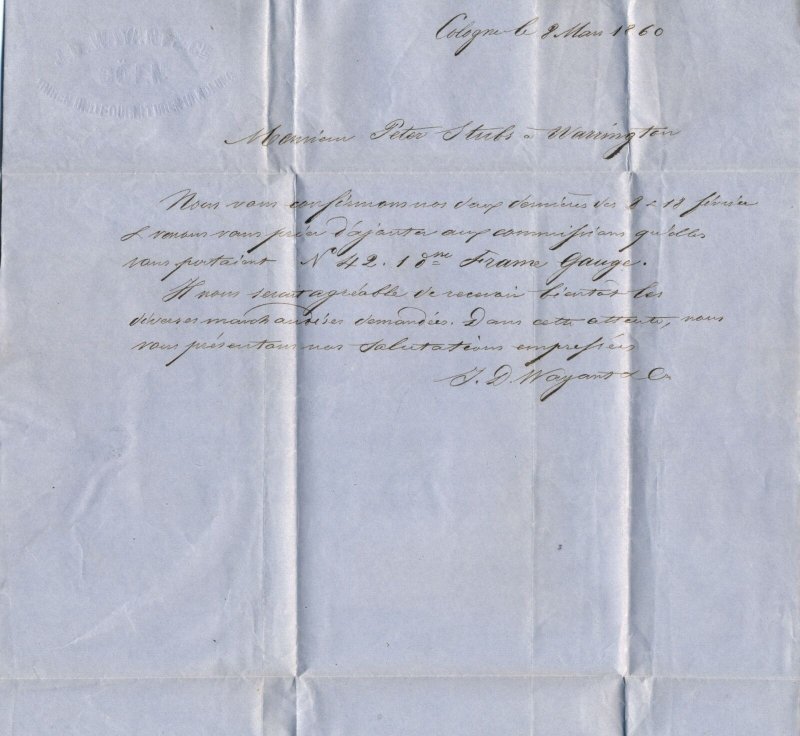 Cologne le 8 Mars 1860
Monsieur Peter Stubs à Warrington
Nous vous confirmons nos deux dernières des 8 & 18 février
& venons vous prier d'ajouter aux commissions qu'elles
vous portaient No 42. 1 dne Frame Gauge.
Il nous serait agréable de recevoir bientôt les
diverses marchandises demandées. Dans cette attente, nous
vous présentons nos salutations empressées
J. D. Wayant & Co
CÖLN